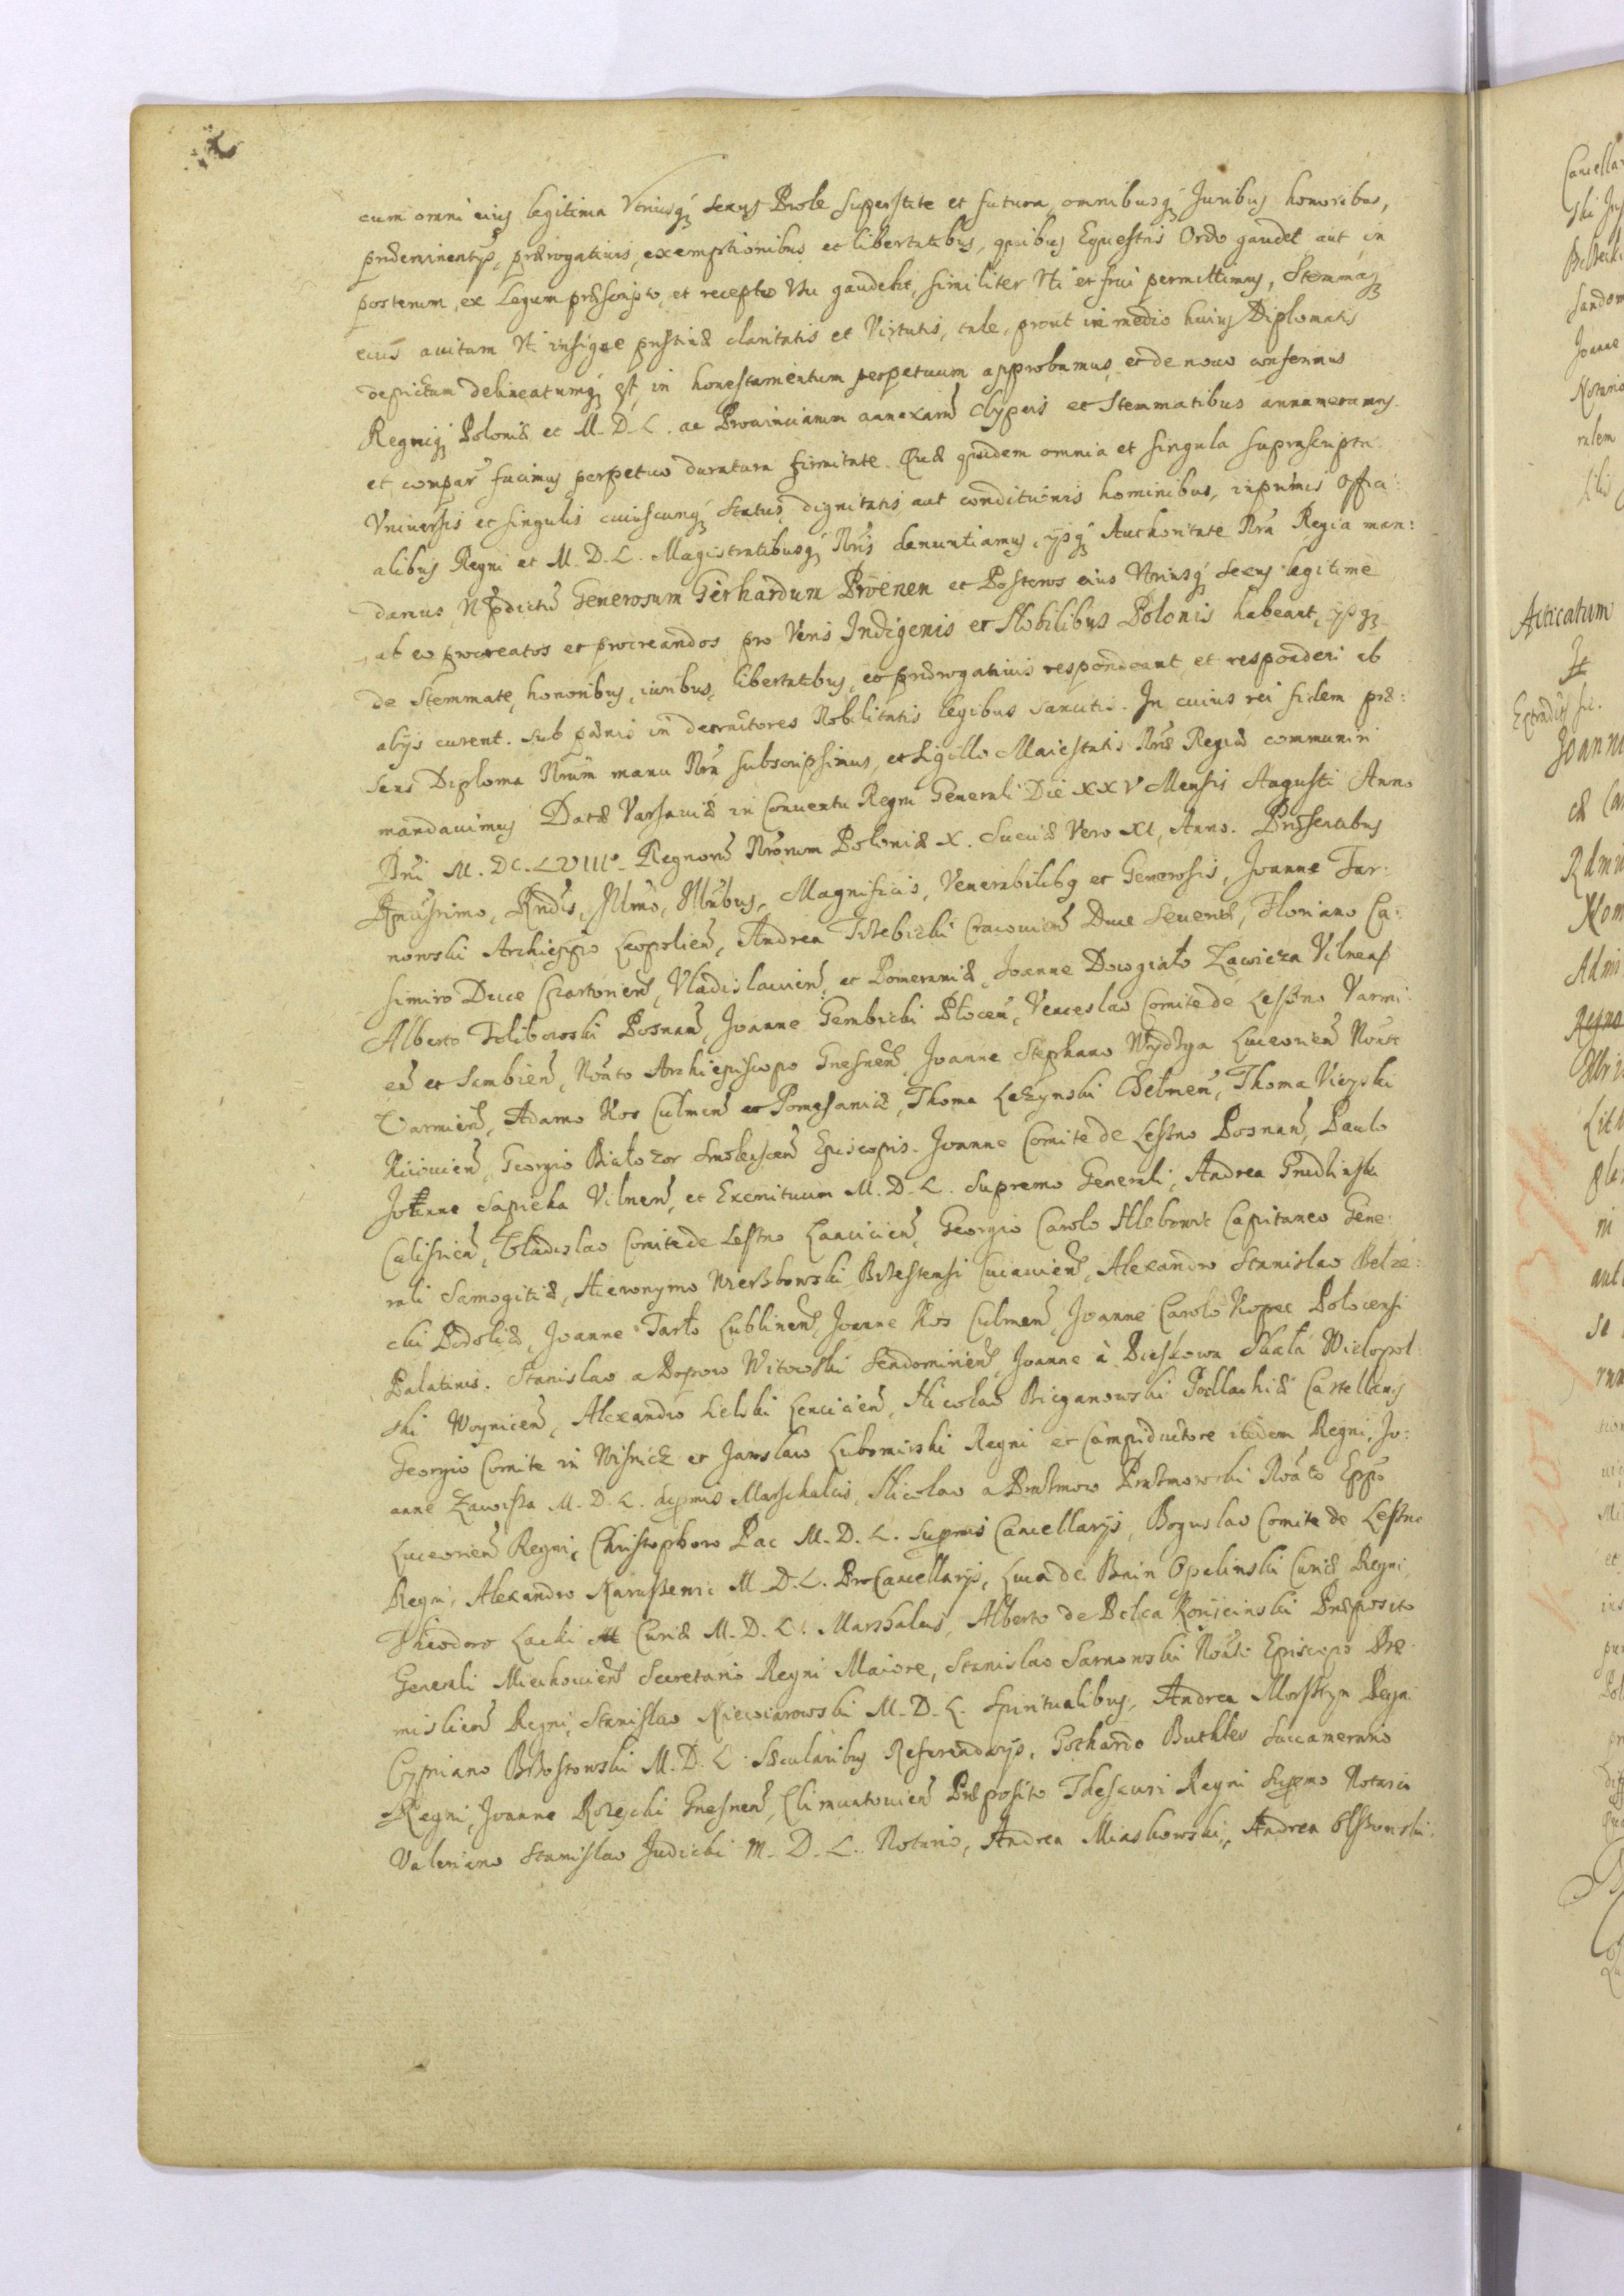 cum omni eius legitima Vtriusq; sexus Prole superstite et futura, omnibusq; Juribus honoribus,
præeminentijs, prærogatiuis, exemptionibus et libertatibus, quibus Equestris Ordo gaudet aut in
posterum, ex Legum præscripto, et recepto Vsu gaudebit, similiter Vti et frui permittimus, Stemmaq;
eius auitum Vti insigne pristinæ claritatis et Virtutis, tale, prout in medio huius Diplomatis
depictum delineatumq; est, in honestamentum perpetuum approbamus, et de nouo conferimus
Regniq; Poloniæ et M. D. L. ac Prouinciarum annexarũ clypeis et Stemmatibus annumeramus.
et compar facimus perpetuo duratura firmitate. Quæ quidem omnia et singula suprascripta
Vniuersis et singulis cuiuscunq; Status, dignitatis aut conditionis hominibus, inprimis Offici:
alibus Regni et M. D. L. Magistratibusq; Nris denuntiamus, ijsq; Authoritate Nra Regia man:
damus, Vt pdictũ Generosum Gerhardum Prõenen et Posteros eius Vtriusq; sexus legitime
ab eo procreatos et procreandos pro Veris Indigenis et Nobilibus Polonis habeant, ijsq;
de Stemmate, honoribus, iuribus, libertatibus, et prærogatiuis respondeant et responderi ab
alijs curent. Sub pænis in detractores Nobilitatis legibus sancitis. In cuius rei fidem præ:
sens Diploma Nrum manu Nra subscripsimus, et Sigillo Maiestatis Nræ Regiæ communiri
mandauimus Datæ Varsauiæ in Conuentu Regni Generali Die XXV Mensis Augusti Anno
Dni M. DC. LVIII⁰ Regnorũ Nrorum Poloniæ X. Sueciæ Vero XI, Anno. Præsentibus
Rmisimo, Rndis, Illmo, Illribus, Magnificis, Venerabilibq et Generosis, Joanne Tar:
nowski Archieppo Leopolien, Andrea Trzebicki Cracouien Duce Seueriæ, Floriano Ca:
simiro Duce Czartorien, Vladislauien, et Pomeraniæ, Joanne Dowgiało Zawisza Vilnens
Alberto Tolibowski Posnan, Joanne Gembicki Płocen, Venceslao Comite de Leszno Varmi:
en et Sambien, Nõato Archiepiscopo Gnesnen, Joanne Stephano Wydzga Luceorien Nõato
Varmien, Adamo Kos Culmen et Pomesaniæ, Thoma Leżynski Chelmen, Thoma Vieyski
Kiiouien, Georgio Białozor Smolenscen Episcopis. Joanne Comite de Leszno Posnan, Paulo
Joanne Sapieha Vilnen, et Exercituum M. D. L. Supremo Generali, Andrea Grudzinski
Calisien, Vladislao Comite de Leszno Lancicien, Georgio Carolo Hlebowic Capitaneo Gene:
rali Samogitiæ, Hieronymo Wierzbowski Brzestensi Cuiauien, Alexandro Stanislao Belze:
cki Podoliæ, Joanne Tarło Lublinen, Joanne Kos Culmen, Joanne Carolo Kopec Polocensi
Palatinis. Stanislao a Popow Witowski Sendomirien, Joanne à Pieskowa Skała Wielopol:
ski Woynicen, Alexandro Sielski Lencicien, Nicolao Bieganowski Podlachiæ Castellanis
Georgio Comite in Wisnicz et Jaroslaw Lubomirski Regni et Campiductore itidem Regni, Jo:
anne Zawisza M. D. L. Supmis Marschalcis, Nicolao a Prazmow Prazmowski Nõato Eppo
Luceorien Regni, Christophoro Pac M. D. L. Supmis Cancellarijs, Boguslao Comite de Leszno
Regni, Alexandro Naruszewic M. D. L. ProCancellarijs, Luca de Bnin Opalinski Curiæ Regni,
Theodoro Lacki Curiæ M. D. L. Marshalcis, Alberto de Pilca Koricinski Præposito
Generali Miechouien Secretario Regni Maiore, Stanislao Sarnowski Nõato Episcopo Præ:
mislien Regni, Stanislao Niewiarowski M. D. L. Spiritualibus, Andrea Morsztyn Regni
Cypriano Brzostowski M. D. L. Sæcularibus Referendarijs, Gothardo Buthler Succamerario
Regni, Joanne Rożycki Gnesnen, Climuntouien Præposito Thesauri Regni Supmo Notario
Valeriano Stanislao Judicki M. D. L. Notario, Andrea Miaskowski, Andrea Olszowski
Acticatum